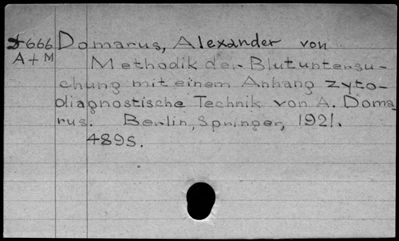 666 Domarus, Alexander von
A+M Methodik der Blutuntersu-
chung mit einem Anhang zyto-
diagnostische Technik von A. Doma
rus. Berlin, Springer, 1921.
489S.